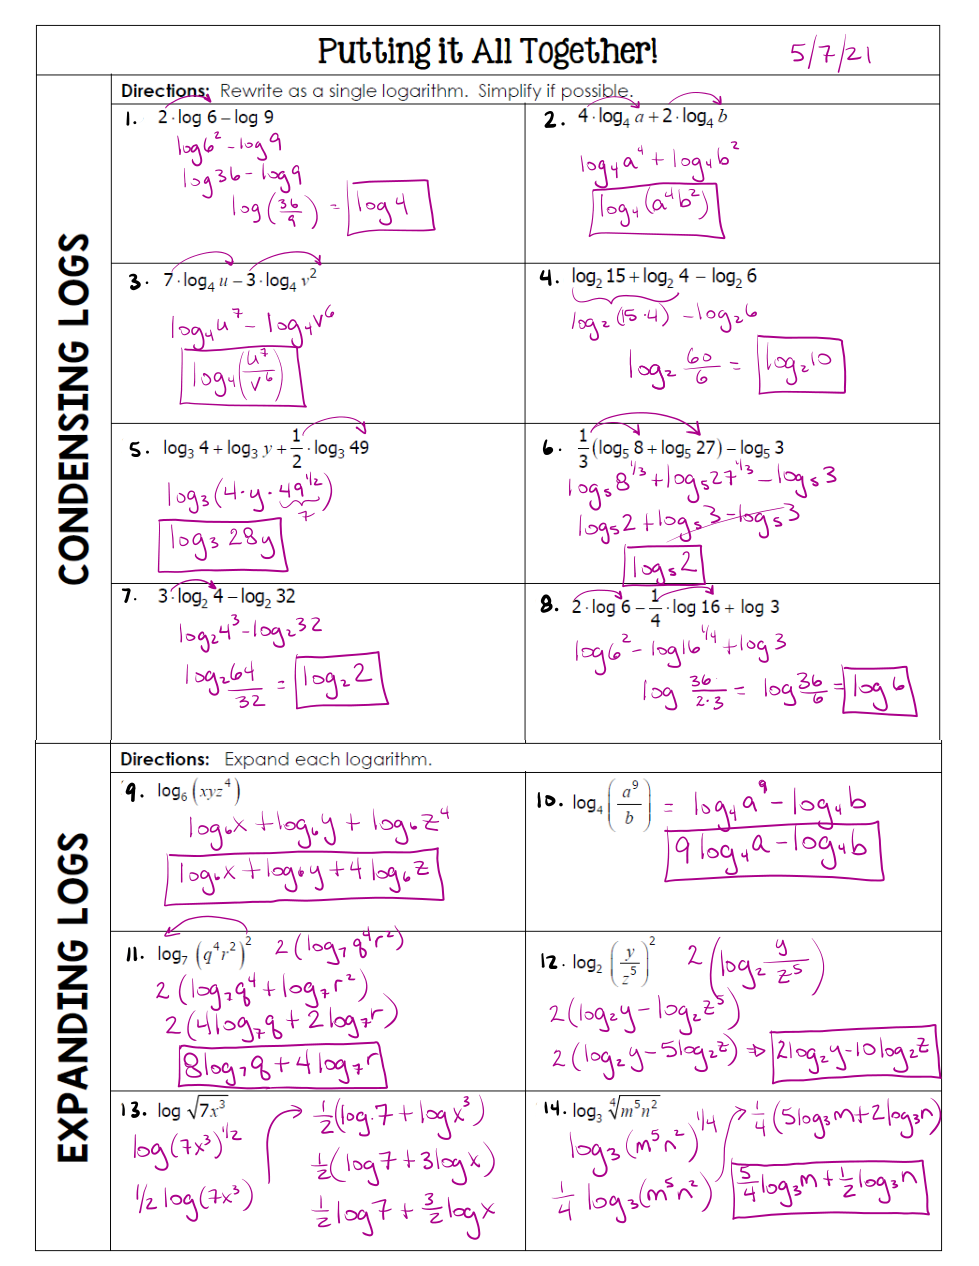 Putting it All Together!
5/7/21
CONDENSING LOGS
Directions: Rewrite as a single logarithm. Simplify if possible.
1. 2·log 6 – log 9
log6² - log9
log36 - log9
log(36/9) = log4
2. 4·log₄ a + 2·log₄ b
log₄a⁴ + log₄b²
log₄(a⁴b²)
3. 7·log₄ u – 3·log₄ v²
log₄u⁷ - log₄v⁶
log₄(u⁷/v⁶)
4. log₂ 15 + log₂ 4 – log₂ 6
log₂(15·4) - log₂6
log₂ 60/6 = log₂10
5. log₃ 4 + log₃ y + 1/2 · log₃ 49
log₃(4·y·49^1/2)
7
log₃ 28y
6. 1/3(log₅ 8 + log₅ 27) – log₅ 3
log₅8^1/3 + log₅27^1/3 - log₅3
log₅2 + log₅3 - log₅3
log₅2
7. 3·log₂ 4 – log₂ 32
log₂4³ - log₂32
log₂64/32 = log₂2
8. 2·log 6 – 1/4·log 16 + log 3
log6² - log16^1/4 + log3
log 36/2·3 = log 36/6 = log 6
EXPANDING LOGS
Directions: Expand each logarithm.
9. log₆(xyz⁴)
log₆x + log₆y + log₆z⁴
log₆x + log₆y + 4 log₆z
10. log₄(a⁹/b) = log₄a⁹ - log₄b
9log₄a - log₄b
11. log₇(q⁴r²)² 2(log₇q⁴r²)
2(log₇q⁴ + log₇r²)
2(4log₇q + 2log₇r)
8log₇q + 4log₇r
12. log₂(y/z⁵)² 2(log₂ y/z⁵)
2(log₂y - log₂z⁵)
2(log₂y - 5log₂z) ⇒ 2log₂y - 10log₂z
13. log √7x³
log(7x³)^1/2
1/2 log(7x³)
1/2(log7 + logx³)
1/2(log7 + 3logx)
1/2log7 + 3/2logx
14. log₃ ⁴√m⁵n²
log₃(m⁵n²)^1/4
1/4 log₃(m⁵n²)
1/4(5log₃m + 2log₃n)
5/4log₃m + 1/2log₃n